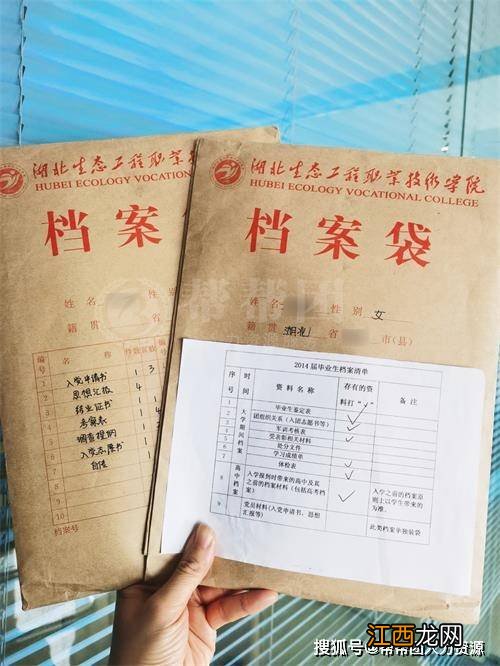 湖北生态工程职业技
HUBEI ECOLOGY VOCATIONAL
档案
姓名
性别
籍贯
省
编号
名称
件数
页数
1 入党申请书 1 3
2 思想汇报 4
3 结业证书 1
4 考察表 1
5 调查提纲 1
6 入党志愿书 1
7 自传 1
8
9
10
档案号
湖北生态工程职业技术学院
HUBEI ECOLOGY VOCATIONAL COLLEGE
档案袋
姓名
性别 女
籍贯 湖北 省
市(县)
帮帮团
2014 届毕业生档案清单
序号
时间
资料名称
存有的资料打“√”
备注
大学期间档案
1 毕业生鉴定表
2 团组织关系(入团志愿书等)
3 军训考核表
4 受表彰相关材料
5 处分文件
6 学习成绩单
7 体检表
高中档案
8 入学报到时带来的高中及其之前的档案材料(包括高考档案)
入学之前的档案原则上以学生带来的为准.
9 党员材料(入党申请书、思想汇报等)
此类档案单独装袋
搜狐号@帮帮团人力资源
江西龙网